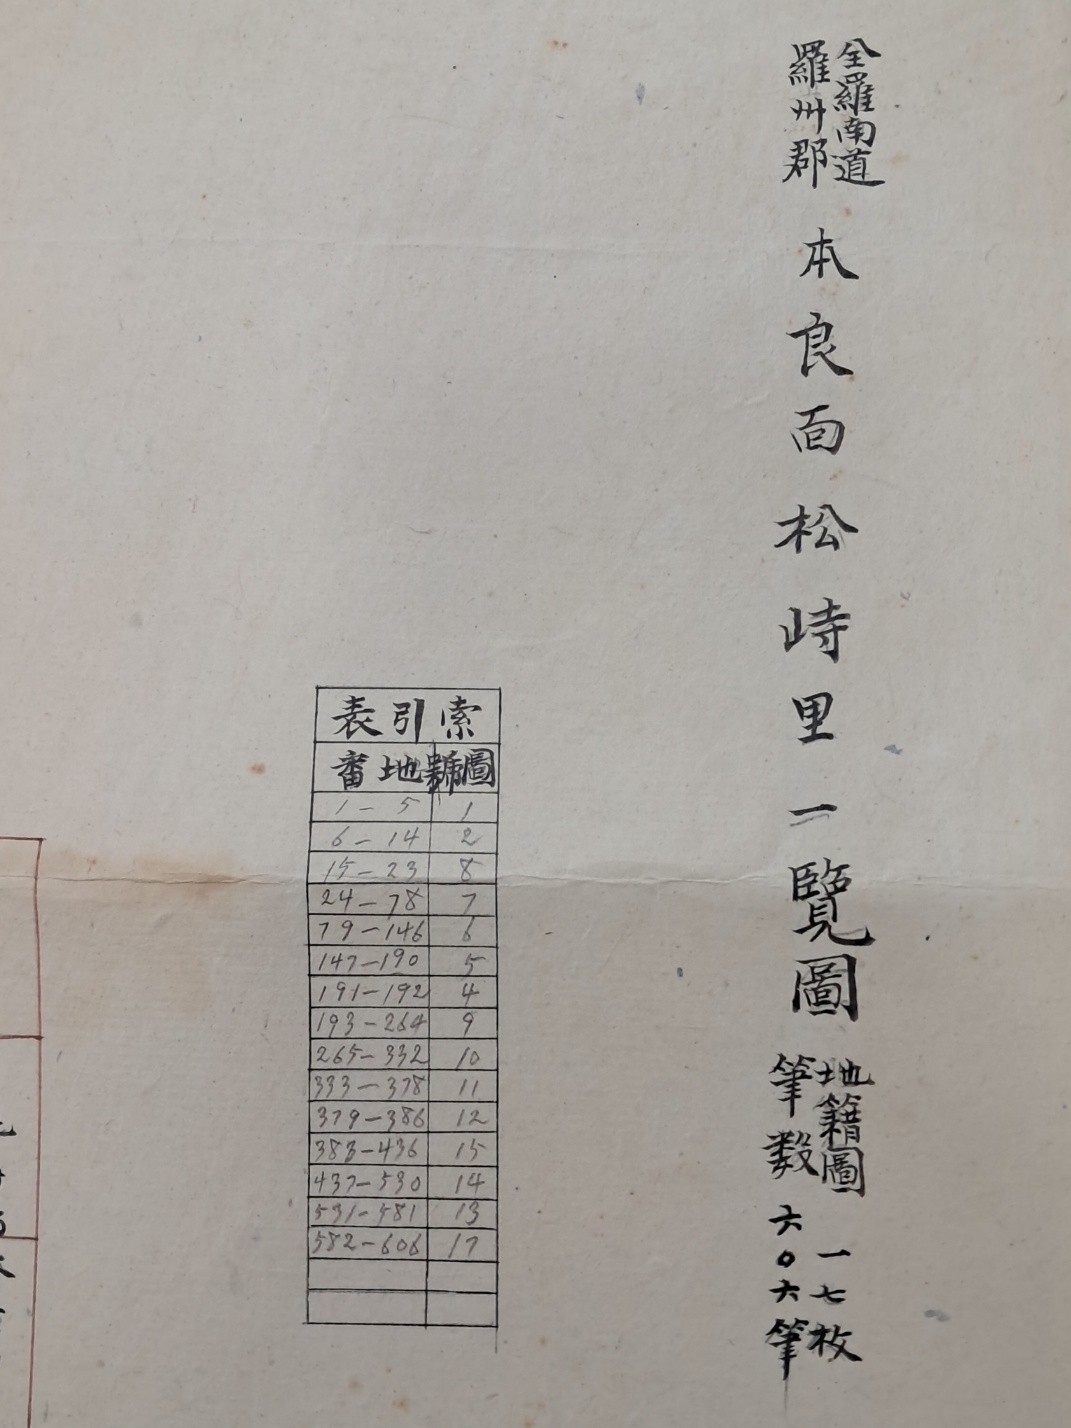 全羅南道
羅州郡
本良面松峙里一覽圖
地籍圖 一七枚
筆数 六〇六筆
索引表
圖號 地番
1-5 1
6-14 2
15-23 8
24-78 7
79-146 6
147-190 5
191-192 4
193-264 9
265-332 10
333-378 11
379-386 12
383-436 15
437-530 14
531-581 13
582-606 17